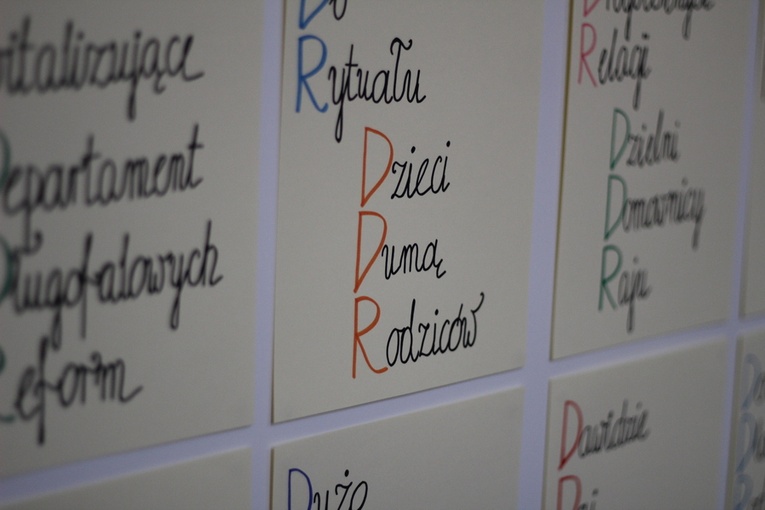 Departament
Długofalowych
Reform
Do
Rytuału
Dzieci
Dumą
Rodziców
Dużo
Relacji
Dzielni
Domownicy
Raju
Dawidzie